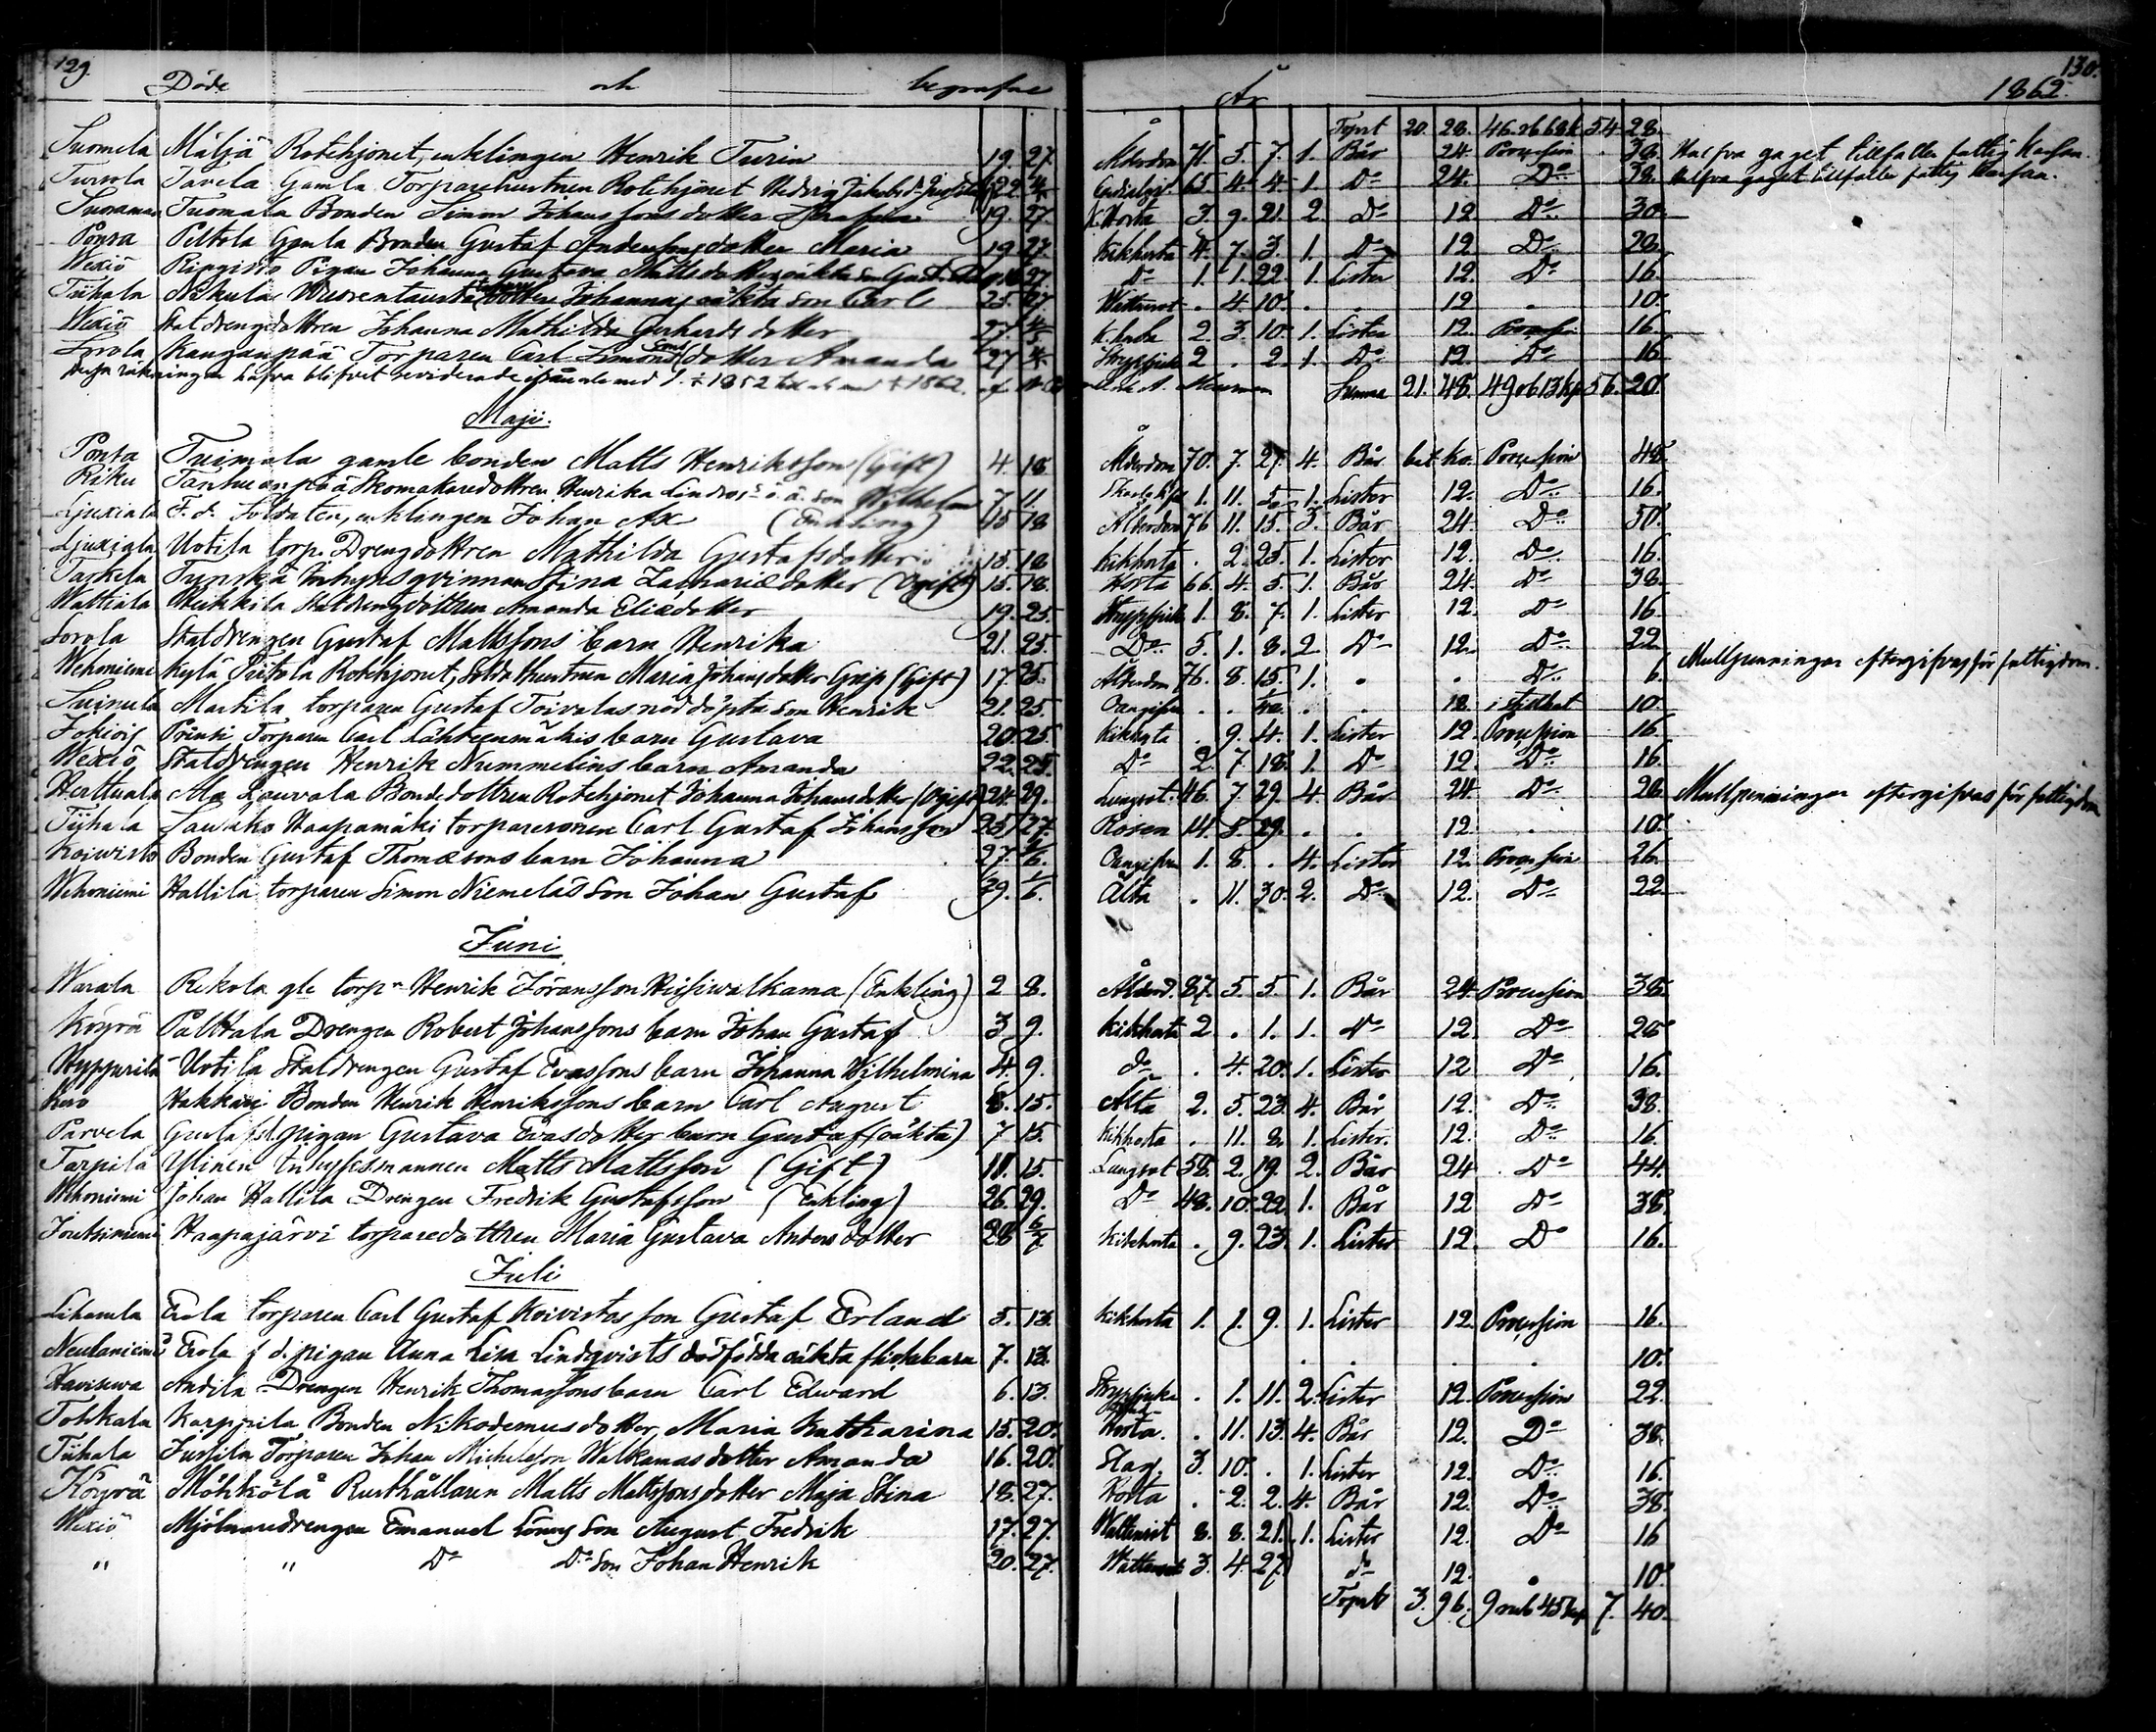 129. Döde och begrafne År 1862. 130.
Topst 20. 28. 46. rb 68 k 54. 28.
Suomela Mäljä Rotehjonet, enklingen Henrik Turin 19. 27. Ålderdom 71. 5. 7. 1. Bår 24. Procession 38. Halfva gaget tillfaller fattig Kassan.
Tursola Tavela Gamla Torparehustrun Rotehjonet Hedvig Jakobsd. 65. 4. 4. 1. Do 24. Do 38. Halfva gaget tillfaller fattig Kassan.
Tuomala Bonden Simon Johanssons dotter Serafina 19. 27. K. Hosta 3. 9. 21. 2. Do 12. Do 30.
Ponsa Peltola Gamla Bonden Gustaf Anderssons dotter Maria 19. 27. Kikhosta 4. 7. 3. 1. Do 12. Do 28.
Wexiö Pigan Johanna Gustava Mattsdotters oäkta son Gust. 27. Do 1. 1. 22. 1. Lister 12. Do 16.
Tiihala Nikula Johannas oäkta son Carl 25. 27. Wattusot . 4. 10. . . 12 . 10.
Wexiö Statdrengsdottren Johanna Mathilda Gerhardsdotter 27. 4/5 K. hosta 2. 3. 10. 1. Lister 12. Procession 16.
Sorola Kangaspää Torparen Carl Simonssons dotter Amanda 27 4. Strypsjuk 2 . 2. 1. Do 12. Do 16
räkningar hafva blifvit reviderade ifrån ale med 1852 till ale med 1862. af Summa 21. 48. 49 rb 13 kp 56. 20.
Maji.
Ponsa Tuimala gamle bonden Matts Henriksson (Gift) 4. 18 Ålderdom 70. 7. 27. 4. Bår bet. ko. Procession 48.
Riku Tanhuanpää Skomakaredottren Henrika Lindros's o. ä. son Wilhelm 7 11. 1. 11. 5. 1. Lister 12. Do 16.
Ljuxiala F. d. Soldaten, enklingen Johan Ax (Enkling) 15 18 Ålderdom 76 11. 15. 3. Bår 24. Do 50.
Ljuxiala Uotila torp. Drengdottren Mathilda Gustafsdotter 15. 18 Kikhosta . 2. 25. 1. Lister 12. Do 16.
Taskela Tynskä Inhyses qvinnan Stina Zachariædotter (Ogift) 15. 18. Hosta 66. 4. 5. 1. Bår 24. Do 38.
Wattiala Weikkila Statdrengdottren Amanda Eliædotter 19. 25. Strypsjuk 1. 8. 7. 1. Lister 12. Do 16.
Sorola Statdrengen Gustaf Mattssons barn Henrika 21. 25. Do 5. 1. 8. 2 Do 12. Do 22.
Wehoniemi Kylä Pietola Rotehjonet, Soldathustrun Maria Johansdotter Grip (Gift) 17. 25. Ålderdom 76. 8. 15. 1. . . Do 6. Mullpenningar eftergifvas för fattigdom.
Suinula Martila torparen Gustaf Toivolas nöddöpta son Henrik 21. 25. Oangifven . . . . 12. i stillhet 10.
Jokiois Prinki Torparen Carl Lähteenmäkis barn Gustava 20. 25. Kikhosta . 9. 4. 1. Lister 12. Procession 16.
Wexiö Statdrengen Henrik Nummelins barn Amanda 22. 25. Do 2 7 18. 1. Do 12. Do 16.
Herttuala Ala Louvala Bondedottren Rotehjonet Johanna Johansdotter (Ogift) 24. 29. Lungsot. 46. 7. 29. 4. Bår 24. Do 28. Mullpenningar eftergifvas för fattigdom
Tiihala Laurako Haapamäki torparesonen Carl Gustaf Johansson 25. 27. Rosen 14. 5. 29. . . 12. . 10.
Koiwisto Bonden Gustaf Thomæsons barn Johanna 27. 1/6. Oangifven 1. 8. . 4. Lister 12. Procession 26.
Wehoniemi Hallila torparen Simon Niemeläs son Johan Gustaf 29. 1/6. Älta . 11. 30. 2. Do 12. Do 22
Juni
Warala Rekola gle torpn Henrik Jöransson Heisiwalkama (Enkling) 2 8. Ålderd. 87. 5. 5. 1. Bår 24. Procession 38.
Köyrä Pälttala Drengen Robert Johanssons barn Johan Gustaf 3 9. Kikhosta 2. . 1. 1. Do 12. Do 28
Huppurila Uotila Statdrengen Gustaf Evassons barn Johanna Wilhelmina 4. 9. do . 4. 20. 1. Lister 12 Do 16.
Hakkari Bonden Henrik Henrikssons barn Carl August 8. 15. Älta 2. 5. 23. 4. Bår 12. Do 38.
Parvela pigan Gustava Evasdotter barn Gustaf (oäkta) 7 15. Kikhosta . 11. 8. 1. Lister. 12. Do 16.
Tarpila Ylinen Inhysesmannen Matts Mattsson (Gift) 11. 15. Lungsot 58. 2. 19. 2. Bår 24 Do 44.
Wehoniemi Johan Hallila Drengen Fredrik Gustafsson (Enkling) 26. 29. Do 48. 10. 22. 1. Bår 12 Do 38.
Joutsiniemi Haapajärvi torparedottren Maria Gustava Andersdotter 28 6/7. Kikhosta . 9. 23. 1. Lister 12. Do 16.
Juli
Lihasula Erola torparen Carl Gustaf Koivistos son Gustaf Erland 5. 13. Kikhosta 1. 1. 9. 1. Lister 12. Procession 16.
Neulaniemi Erola f. d. pigan Anna Lisa Lindqvists dödfödda oäkta flickbarn 7. 13. . . . . 10.
Havisewa Andila Drengen Henrik Thomassons barn Carl Edward 6. 13. Strypsjuka . 1. 11. 2. Lister 12. Procession 22.
Tohkala Karppila Bonden Nikodemus dotter, Maria Katharina 15. 20. Hosta. . 11. 13. 4. Bår 12. Do 38.
Tiihala Jussila Torparen Johan Michelsson Walkamas dotter Amanda 16. 20. Slag. 3. 10. . 1. Lister 12. Do 16.
Köyrä Möhkölä Rusthållaren Matts Mattssons dotter Maja Stina 18. 27. Hosta . 2. 2. 4. Bår 12. Do 38.
Wexiö Mjölnaredrengen Emanuel Lönns son August Fredrik 17. 27. Wattensot 8. 8. 21. 1. Lister 12. Do 16
" " Do Do son Johan Henrik 20. 27. Wattensot 3. 4. 27. do 12. . 10.
Topst 3. 96. 9 rub 45 kop 7. 40.